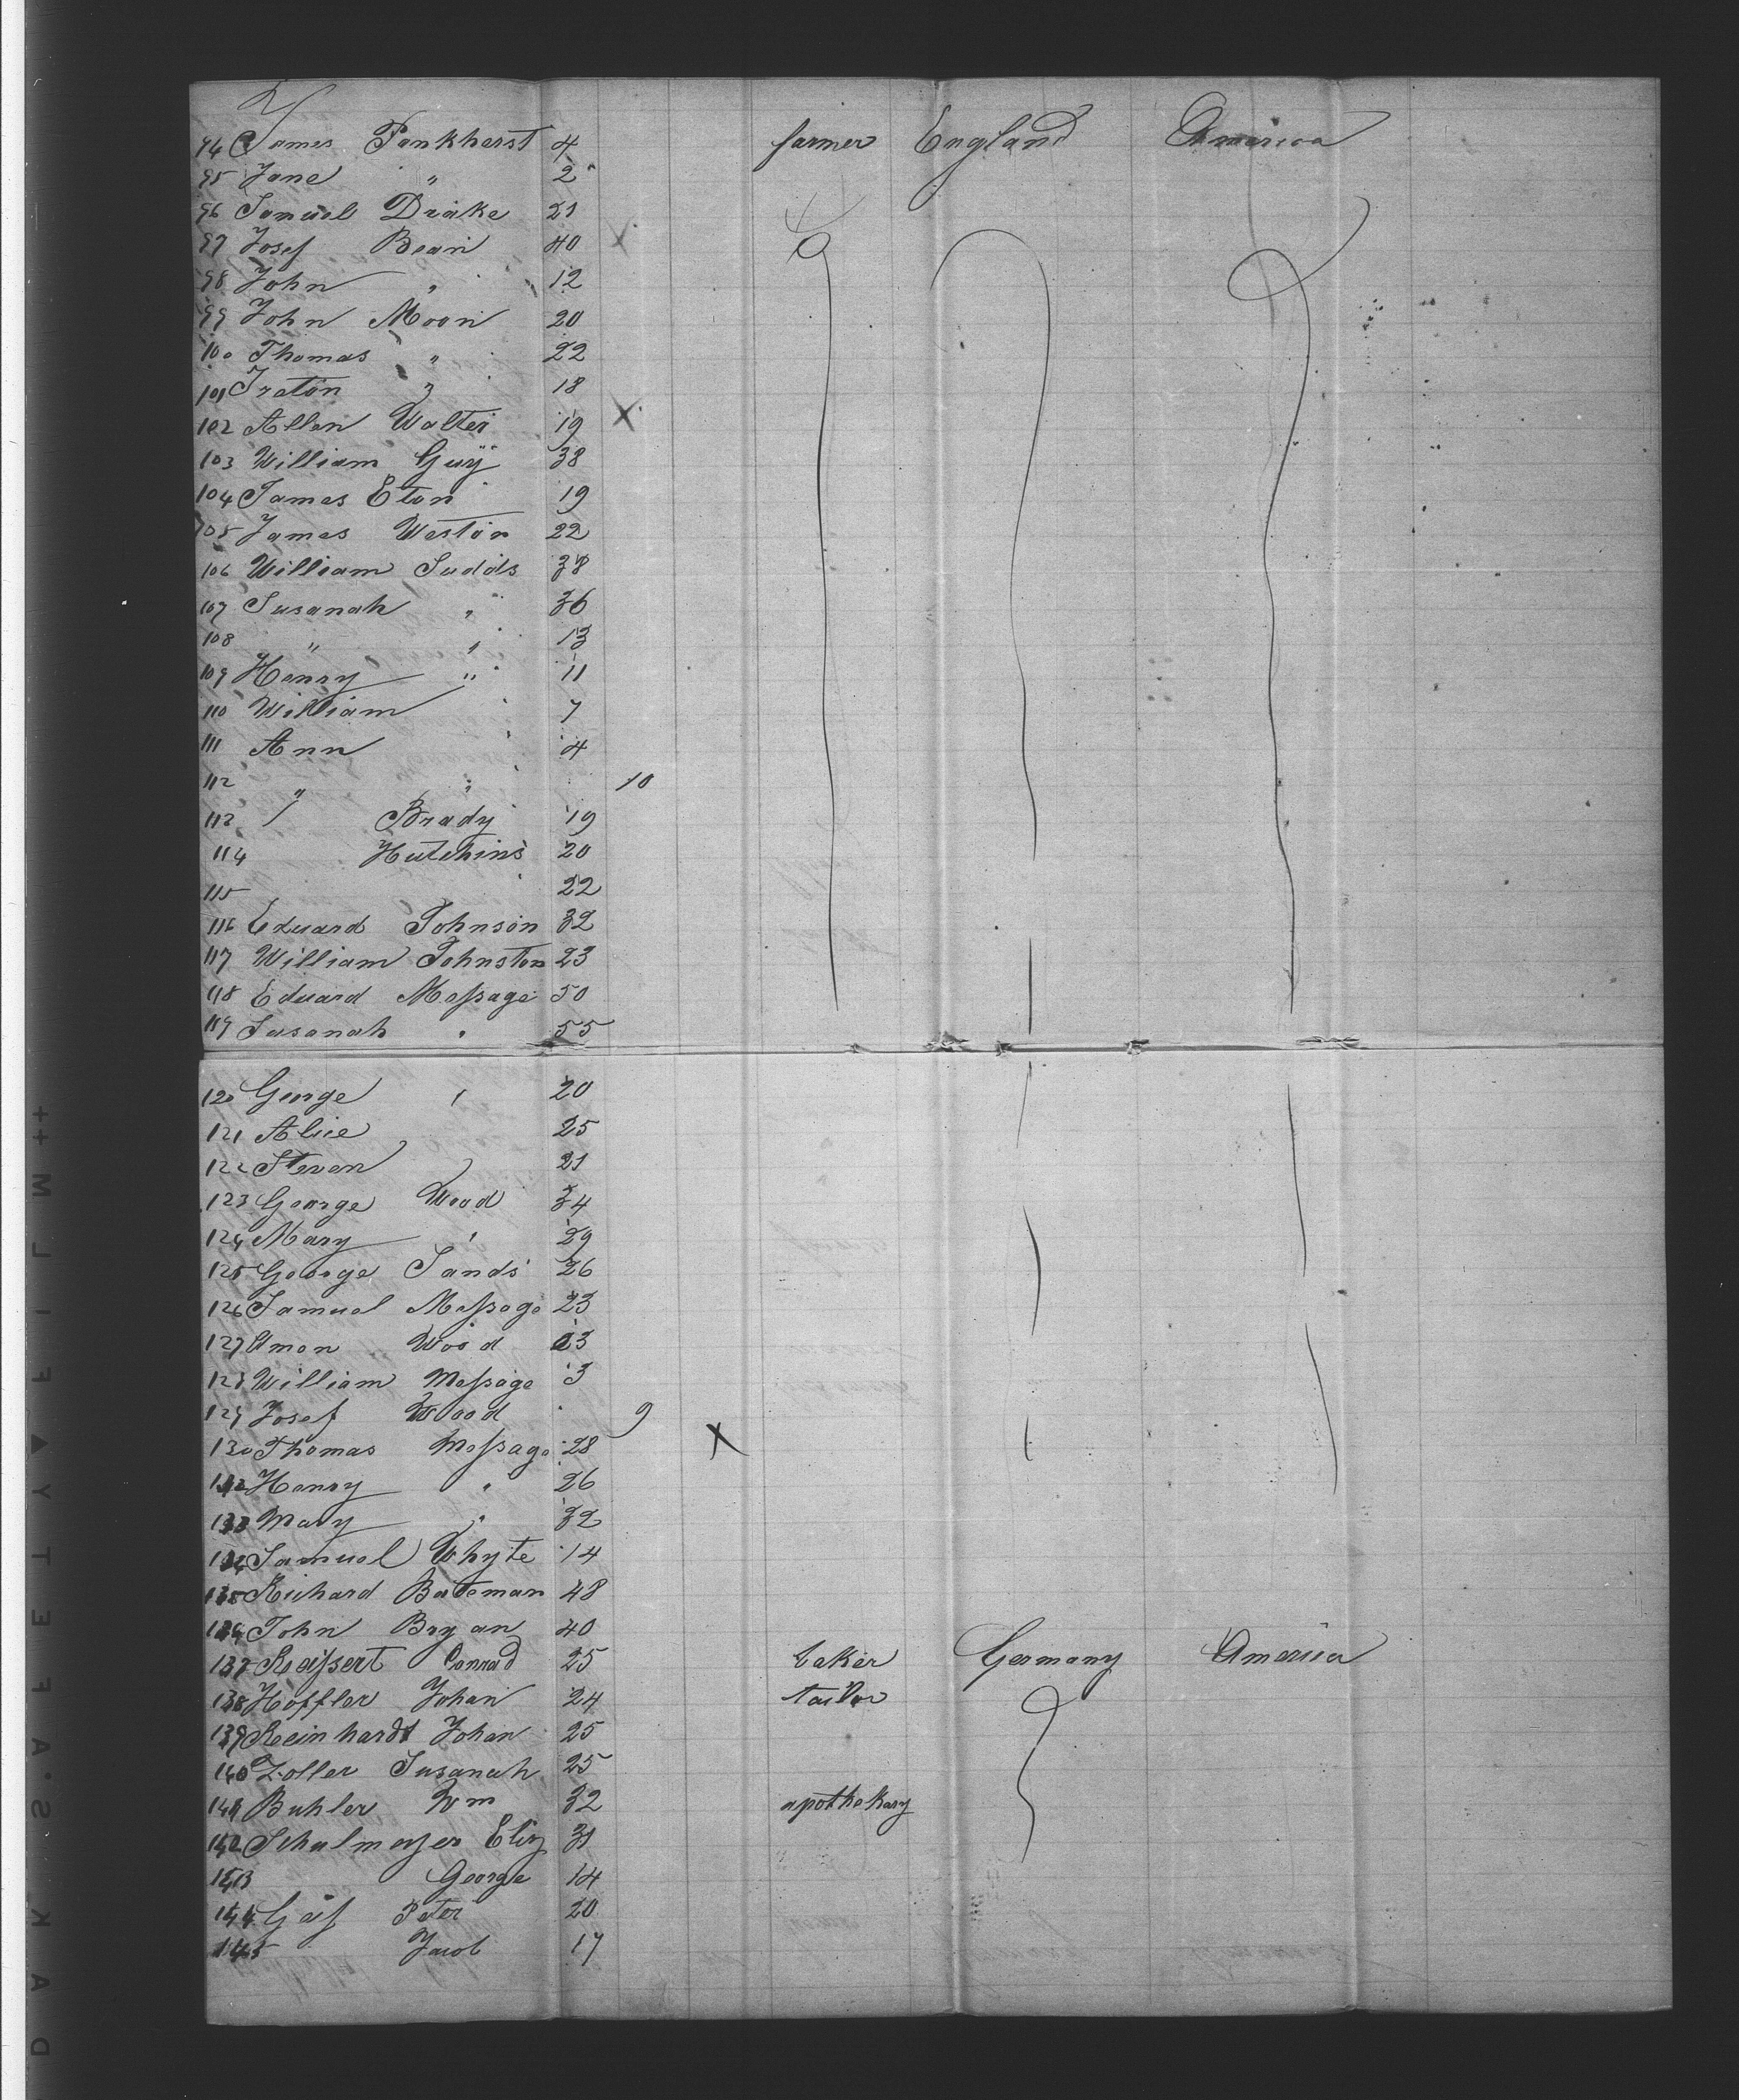 94 James Pankherst 4 farmer England America
95 Jane " 2
96 Samuel Drake 21
97 Josef Bean 40 X
98 John " 12
99 John Moon 20
100 Thomas " 22
101 Ireton " 18
102 Allen Walter 19 X
103 William Guÿ 38
104 James Eton 19
105 James Weston 22
106 William Sudds 38
107 Susanah " 36
108 " " 13
109 Henry " 11
110 William 7
111 Ann 4
112 " " 10
113 Brady 19
114 Hutchins 20
115 22
116 Eduard Johnson 32
117 William Johnston 23
118 Eduard Message 50
119 Susanah " 55
120 George " 20
121 Alice 25
122 Steven 21
123 George Wood 34
124 Mary " 29
125 George Sands 26
126 Samuel Message 23
127 Amon Wood 23
128 William Message 3
129 Josef Wood 9
130 Thomas Message 28 X
132 Henry " 26
133 Mary " 32
134 Samuel Whyte 14
135 Richard Bateman 48
136 John Bryan 40
137 Reissert Conrad 25 baker Germany America
138 Hoffler Johan 24 tailor
139 Reinhardt Johan 25
140 Zoller Susanah 25
141 Buhler Wm 32 apothekary
142 Schulmeyer Eliz 31
143 George 14
144 Peter 20
145 Jacob 17
DAK · S · A FETY ▲ FILM ++